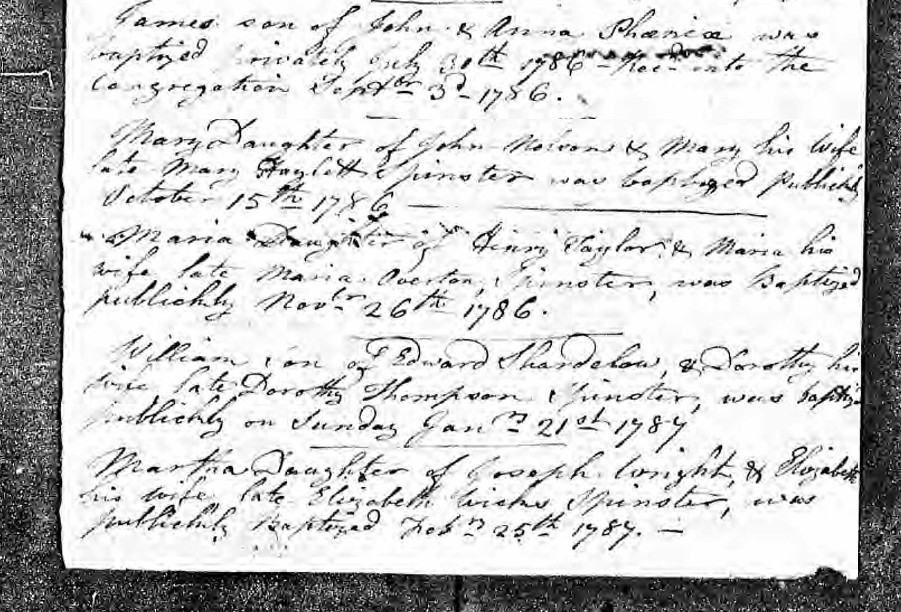 James son of John & Anna Phœnix was
baptized privately July 30th 1786 into the
Congregation Septbr 3d 1786.
Mary Daughter of John & Mary his Wife
late Mary Haylett Spinster was baptized publickly
October 15th 1786
Maria Daughter of Henry Taylor & Maria his
wife late Maria Overton, Spinster, was Baptized
publickly Novbr 26th 1786.
William son of Edward Shardelow, & Dorothy his
wife late Dorothy Thompson Spinster, was baptiz
publickly on Sunday Jany 21st 1787
Martha Daughter of Joseph Wright, & Elizabeth
his wife late Elizabeth Spinster, was
publickly Baptized Feby 25th 1787.